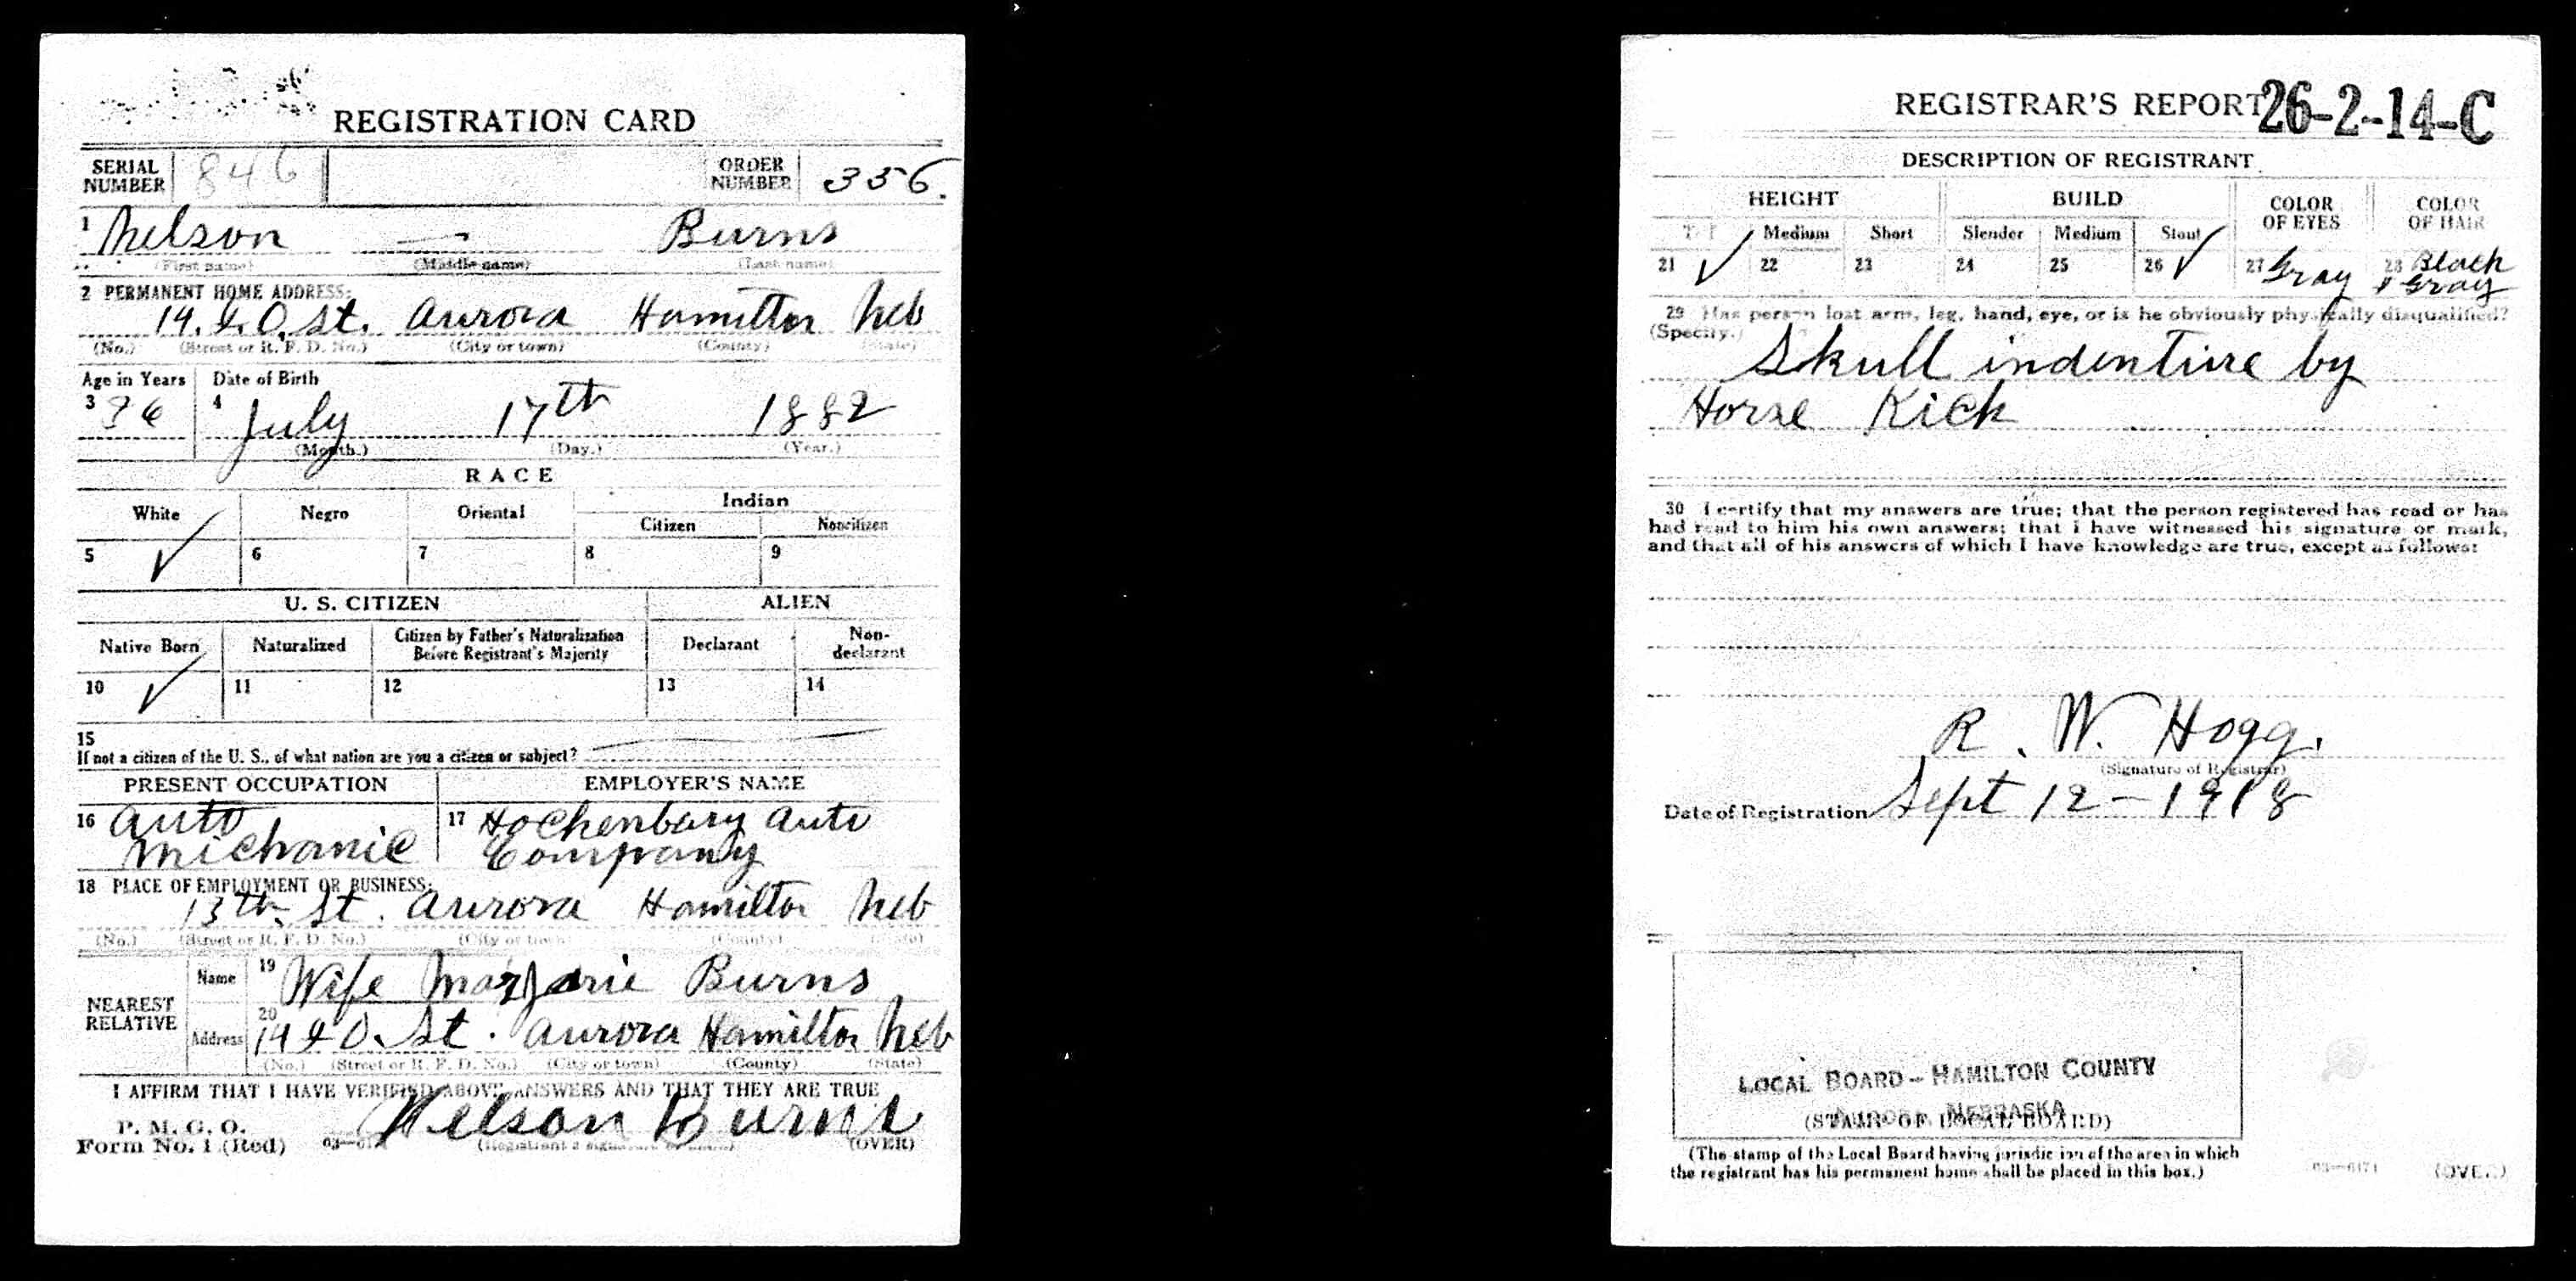 REGISTRATION CARD
SERIAL NUMBER 846 ORDER NUMBER 336.
1 Nelson — Burns
(First name) (Middle name) (Last name)
2 PERMANENT HOME ADDRESS:
14. & O. St. Aurora Hamilton Neb
(No.) (Street or R. F. D. No.) (City or town) (County) (State)
Age in Years Date of Birth
3 36 4 July 17th 1882
(Month.) (Day.) (Year.)
RACE
White Negro Oriental Indian
Citizen Noncitizen
5 ✓ 6 7 8 9
U. S. CITIZEN ALIEN
Native Born Naturalized Citizen by Father's Naturalization Before Registrant's Majority Declarant Non-declarant
10 ✓ 11 12 13 14
15
If not a citizen of the U. S., of what nation are you a citizen or subject?
PRESENT OCCUPATION EMPLOYER'S NAME
16 Auto 17 Hochenbary Auto
Michanic Company
18 PLACE OF EMPLOYMENT OR BUSINESS:
13th. St. Aurora Hamilton Neb
(No.) (Street or R. F. D. No.) (City or town) (County) (State)
NEAREST RELATIVE
Name 19 Wife Marjorie Burns
Address 20 14 & O. St. Aurora Hamilton Neb
(No.) (Street or R. F. D. No.) (City or town) (County) (State)
I AFFIRM THAT I HAVE VERIFIED ABOVE ANSWERS AND THAT THEY ARE TRUE
P. M. G. O.
Form No. 1 (Red) Nelson Burns (OVER)
REGISTRAR'S REPORT 26-2-14-C
DESCRIPTION OF REGISTRANT
HEIGHT BUILD COLOR OF EYES COLOR OF HAIR
Tall Medium Short Slender Medium Stout
21 ✓ 22 23 24 25 26 ✓ 27 Gray 28 Black & Gray
29 Has person lost arm, leg, hand, eye, or is he obviously physically disqualified?
(Specify.)
Skull indenture by
Horse Kick
30 I certify that my answers are true; that the person registered has read or has
had read to him his own answers; that I have witnessed his signature or mark,
and that all of his answers of which I have knowledge are true, except as follows:
R. W. Hogg.
(Signature of Registrar)
Date of Registration Sept 12 - 1918
LOCAL BOARD - HAMILTON COUNTY
NEBRASKA
(STAMP OF LOCAL BOARD)
(The stamp of the Local Board having jurisdiction of the area in which
the registrant has his permanent home shall be placed in this box.)
03—6171 (OVER)